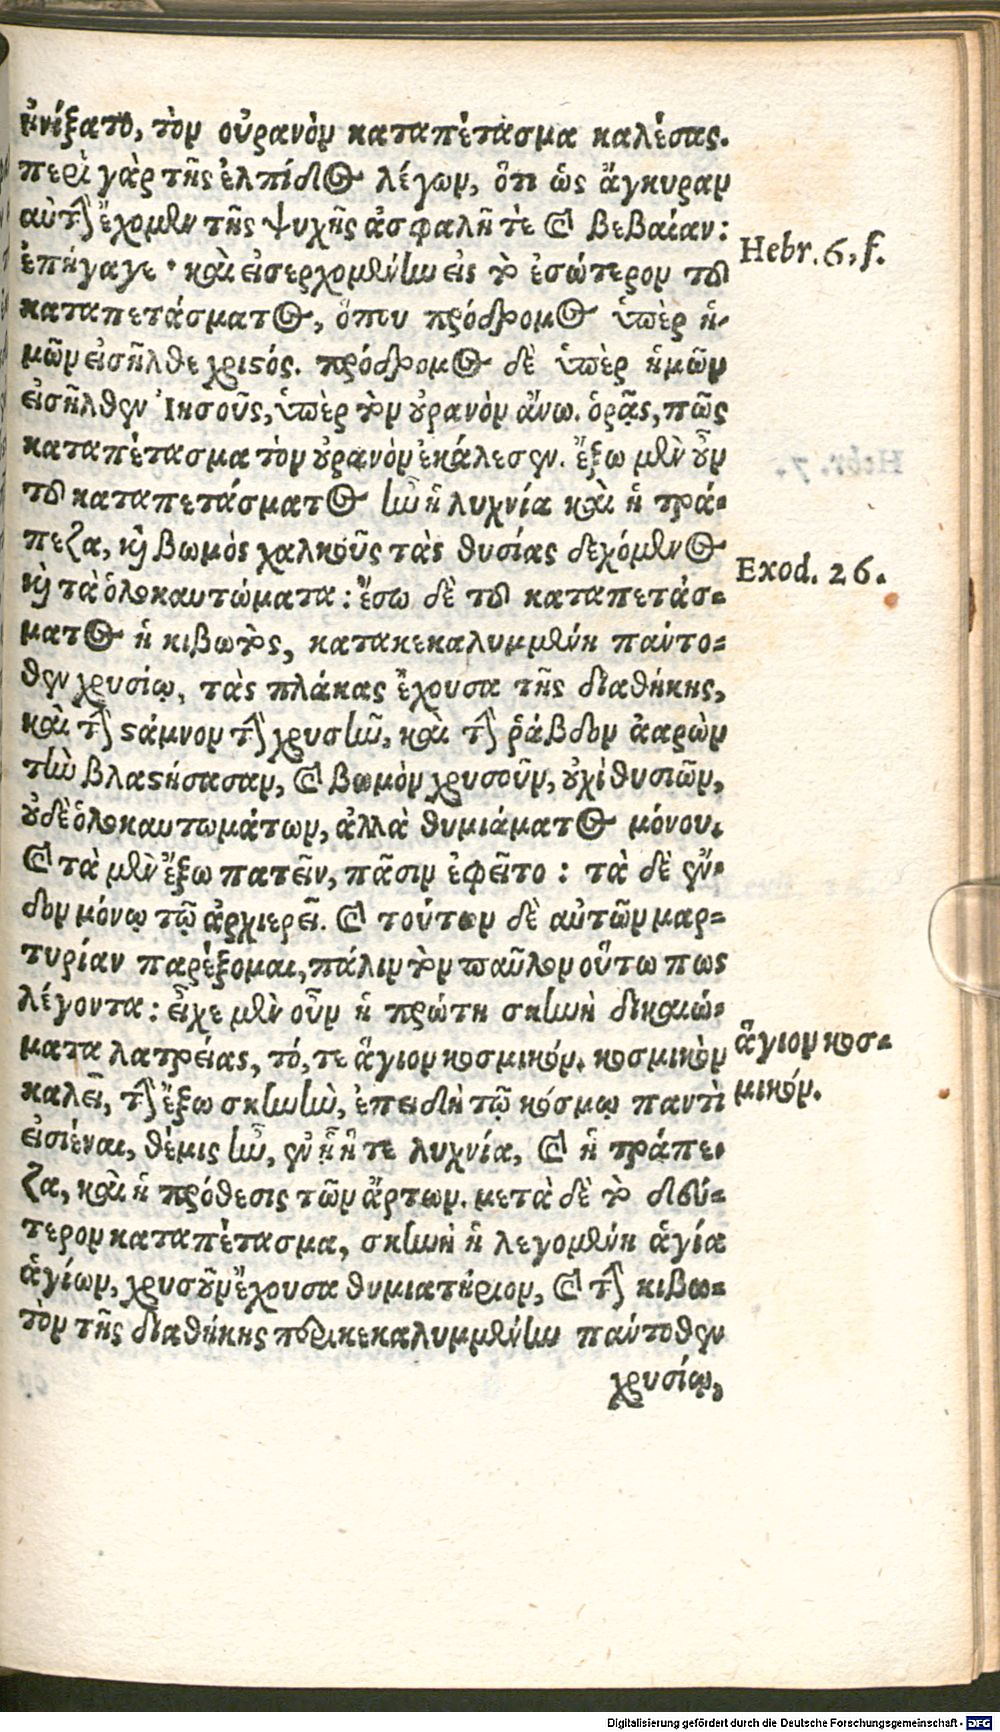 ἠνίξατο, τὸν οὐρανὸν καταπέτασμα καλέσας.
περὶ γὰρ τῆς ἐλπίδος λέγων, ὅτι ὡς ἄγκυραν
αὐτὴν ἔχομεν τῆς ψυχῆς ἀσφαλῆ τὲ καὶ βεβαίαν:
ἐπήγαγε· καὶ εἰσερχομένην εἰς τὸ ἐσώτερον τοῦ
καταπετάσματος, ὅπου πρόδρομος ὑπὲρ ἡ-
μῶν εἰσῆλθε χριστός. πρόδρομος δὲ ὑπὲρ ἡμῶν
εἰσῆλθεν Ἰησοῦς, ὑπὲρ τὸν οὐρανὸν ἄνω. ὁρᾷς, πῶς
καταπέτασμα τὸν οὐρανὸν ἐκάλεσεν. ἔξω μὲν οὖν
τοῦ καταπετάσματος ἦν ἡ λυχνία καὶ ἡ τρά-
πεζα, καὶ βωμὸς χαλκοῦς τὰς θυσίας δεχόμενος
καὶ τὰ ὁλοκαυτώματα: ἔσω δὲ τοῦ καταπετάσ-
ματος ἡ κιβωτὸς, κατακεκαλυμμένη πάντο-
θεν χρυσίῳ, τὰς πλάκας ἔχουσα τῆς διαθήκης,
καὶ τὴν στάμνον τὴν χρυσῆν, καὶ τὴν ῥάβδον ἀαρὼν
τὴν βλαστήσασαν, καὶ βωμὸν χρυσοῦν, οὐχὶ θυσιῶν,
οὐδὲ ὁλοκαυτωμάτων, ἀλλὰ θυμιάματος μόνου.
καὶ τὰ μὲν ἔξω πατεῖν, πᾶσιν ἐφεῖτο: τὰ δὲ ἔν-
δον μόνῳ τῷ ἀρχιερεῖ. καὶ τούτων δὲ αὐτῶν μαρ-
τυρίαν παρέξομαι, πάλιν τὸν παῦλον οὕτω πως
λέγοντα: εἶχε μὲν οὖν ἡ πρώτη σκηνὴ δικαιώ-
ματα λατρείας, τό, τε ἅγιον κοσμικόν. κοσμικὸν
καλεῖ, τὴν ἔξω σκηνὴν, ἐπειδὴ τῷ κόσμῳ παντὶ
εἰσιέναι, θέμις ἦν, ἐν ᾗ ἥ τε λυχνία, καὶ ἡ τράπε-
ζα, καὶ ἡ πρόθεσις τῶν ἄρτων. μετὰ δὲ τὸ δεύ-
τερον καταπέτασμα, σκηνὴ ἡ λεγομένη ἁγία
ἁγίων, χρυσοῦν ἔχουσα θυμιατήριον, καὶ τὴν κιβω-
τὸν τῆς διαθήκης περικεκαλυμμένην πάντοθεν
χρυσίῳ,
Hebr. 6, f.
Exod. 26.
ἅγιον κοσ-
μικόν.
Digitalisierung gefördert durch die Deutsche Forschungsgemeinschaft - DFG